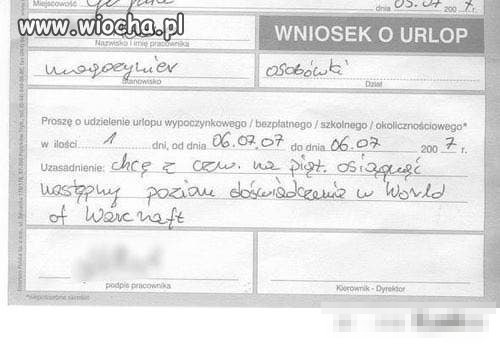 www.wiocha.pl
Miejscowość
dnia 05.07 2007 r.
Nazwisko i imię pracownika
WNIOSEK O URLOP
magazynier
Stanowisko
osobówki
Dział
Proszę o udzielenie urlopu wypoczynkowego / bezpłatnego / szkolnego / okolicznościowego*
w ilości 1 dni, od dnia 06.07.07 do dnia 06.07 2007 r.
Uzasadnienie: chcę z czw. na piąt. osiągnąć
następny poziom doświadczenia w World
of Warcraft
podpis pracownika
Kierownik - Dyrektor
*niepotrzebne skreślić